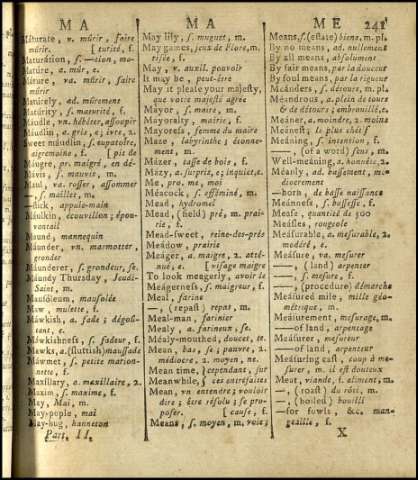 M A
Maturate, v. mûrir, faire
mûrir. [turité, f.
Maturátion, s. —tion, ma-
Matúre, a. mûr, e.
Mature, va. mûrir, faire
mûrir
Maturely, ad. mûrement
Matúrity, s. maturité, f.
Máudle, vn. hébéter, assoupir
Máudlin, a. gris, e; ivre, 2.
Sweet máudlin, s. eupatoire,
aigremoine, f. [pie de
Máugre, pr. malgré, en dé-
Mávis, s. mauvis, m.
Maul, va. rosser, assommer
—, s. maillet, m.
—stick, appuie-main
Máulkin, écouvillon; épou-
vantail
Máund, mannequin
Máunder, vn. marmotter,
gronder
Máunderer, s. grondeur, se.
Máundy Thursday, Jeudi-
Saint, m.
Mausóleum, mausolée
Maw, mulette, f.
Máwkish, a. fade; dégoû-
tant, e.
Máwkishness, s. fadeur, f.
Mawks, a. (sluttish) maussade
Máwmet, s. petite marion-
nette, f.
Maxíllary, a. maxillaire, 2.
Maxim, s. maxime, f.
May, Mai, m.
May-pople, mai
May-bug, hanneton
Part. II.
M A
May lily, s. muguet, m.
May games, jeux de Flore, m.
risée, f.
May, v. auxil. pouvoir
It may be, peut-être
May it please your majesty,
que votre majesté agrée
Mayor, s. maire, m.
Mayoralty, mairie, f.
Mayoress, femme du maire
Maze, labyrinthe; étonne-
ment, m.
Mázer, tasse de bois, f.
Mázy, a. surpris, e; inquiet, e.
Me, pro. me, moi
Méacock, s. efféminé, m.
Mead, hydromel
Mead, (field) pré, m. prai-
rie, f.
Mead-sweet, reine-des-prés
Méadow, prairie
Méager, a. maigre, 2. atté-
nué, e. [visage maigre
To look meagerly, avoir le
Méagerness, s. maigreur, f.
Meal, farine
—, (repast) repas, m.
—al-man, farinier
Mealy, a. farineux, se.
Mealy-mouthed, doucet, te.
Mean, bas, se; pauvre, 2.
médiocre, 2. moyen, ne.
Mean time, } cependant, sur
Meanwhile, } ces entrefaites
Mean, vn. entendre; vouloir
dire; être résolu; se pro-
poser. [cause, f.
Means, s. moyen, m. voie;
M E 241
Means, s. (estate) biens, m. pl.
By no means, ad. nullement
By all means, absolument
By fair means, par la douceur
By foul means, par la rigueur
Meánders, s. détours, m. pl.
Meándrous, a. plein de tours
& de détours; embrouillé, e.
Méaner, a. moindre, 2. moins
Méanest; le plus chétif
Meaning, s. intention, f.
— (of a word) sens, m.
Well-meáning, a. honnête, 2.
Méanly, ad. bassement, mé-
diocrement
—born, de basse naissance
Méanness, s. bassesse, f.
Mease, quantité de 500
Measles, rougeole
Méasurable, a. mesurable, 2.
modéré, e.
Méasure, va. mesurer
—, (land) arpenter
—, s. mesure, f.
—, (procedure) démarche
Méasured mile, mille géo-
métrique, m.
Méasurement, mesurage, m.
—of land, arpentage
Méasurer, mesureur
—of land, arpenteur
Méasuring cast, coup à me-
surer, m. il est douteux
Meat, viande, f. aliment, m.
—, (roast) du rôti, m.
—, (boiled) bouilli
—for fowls, &c. man-
geaille, f.
X